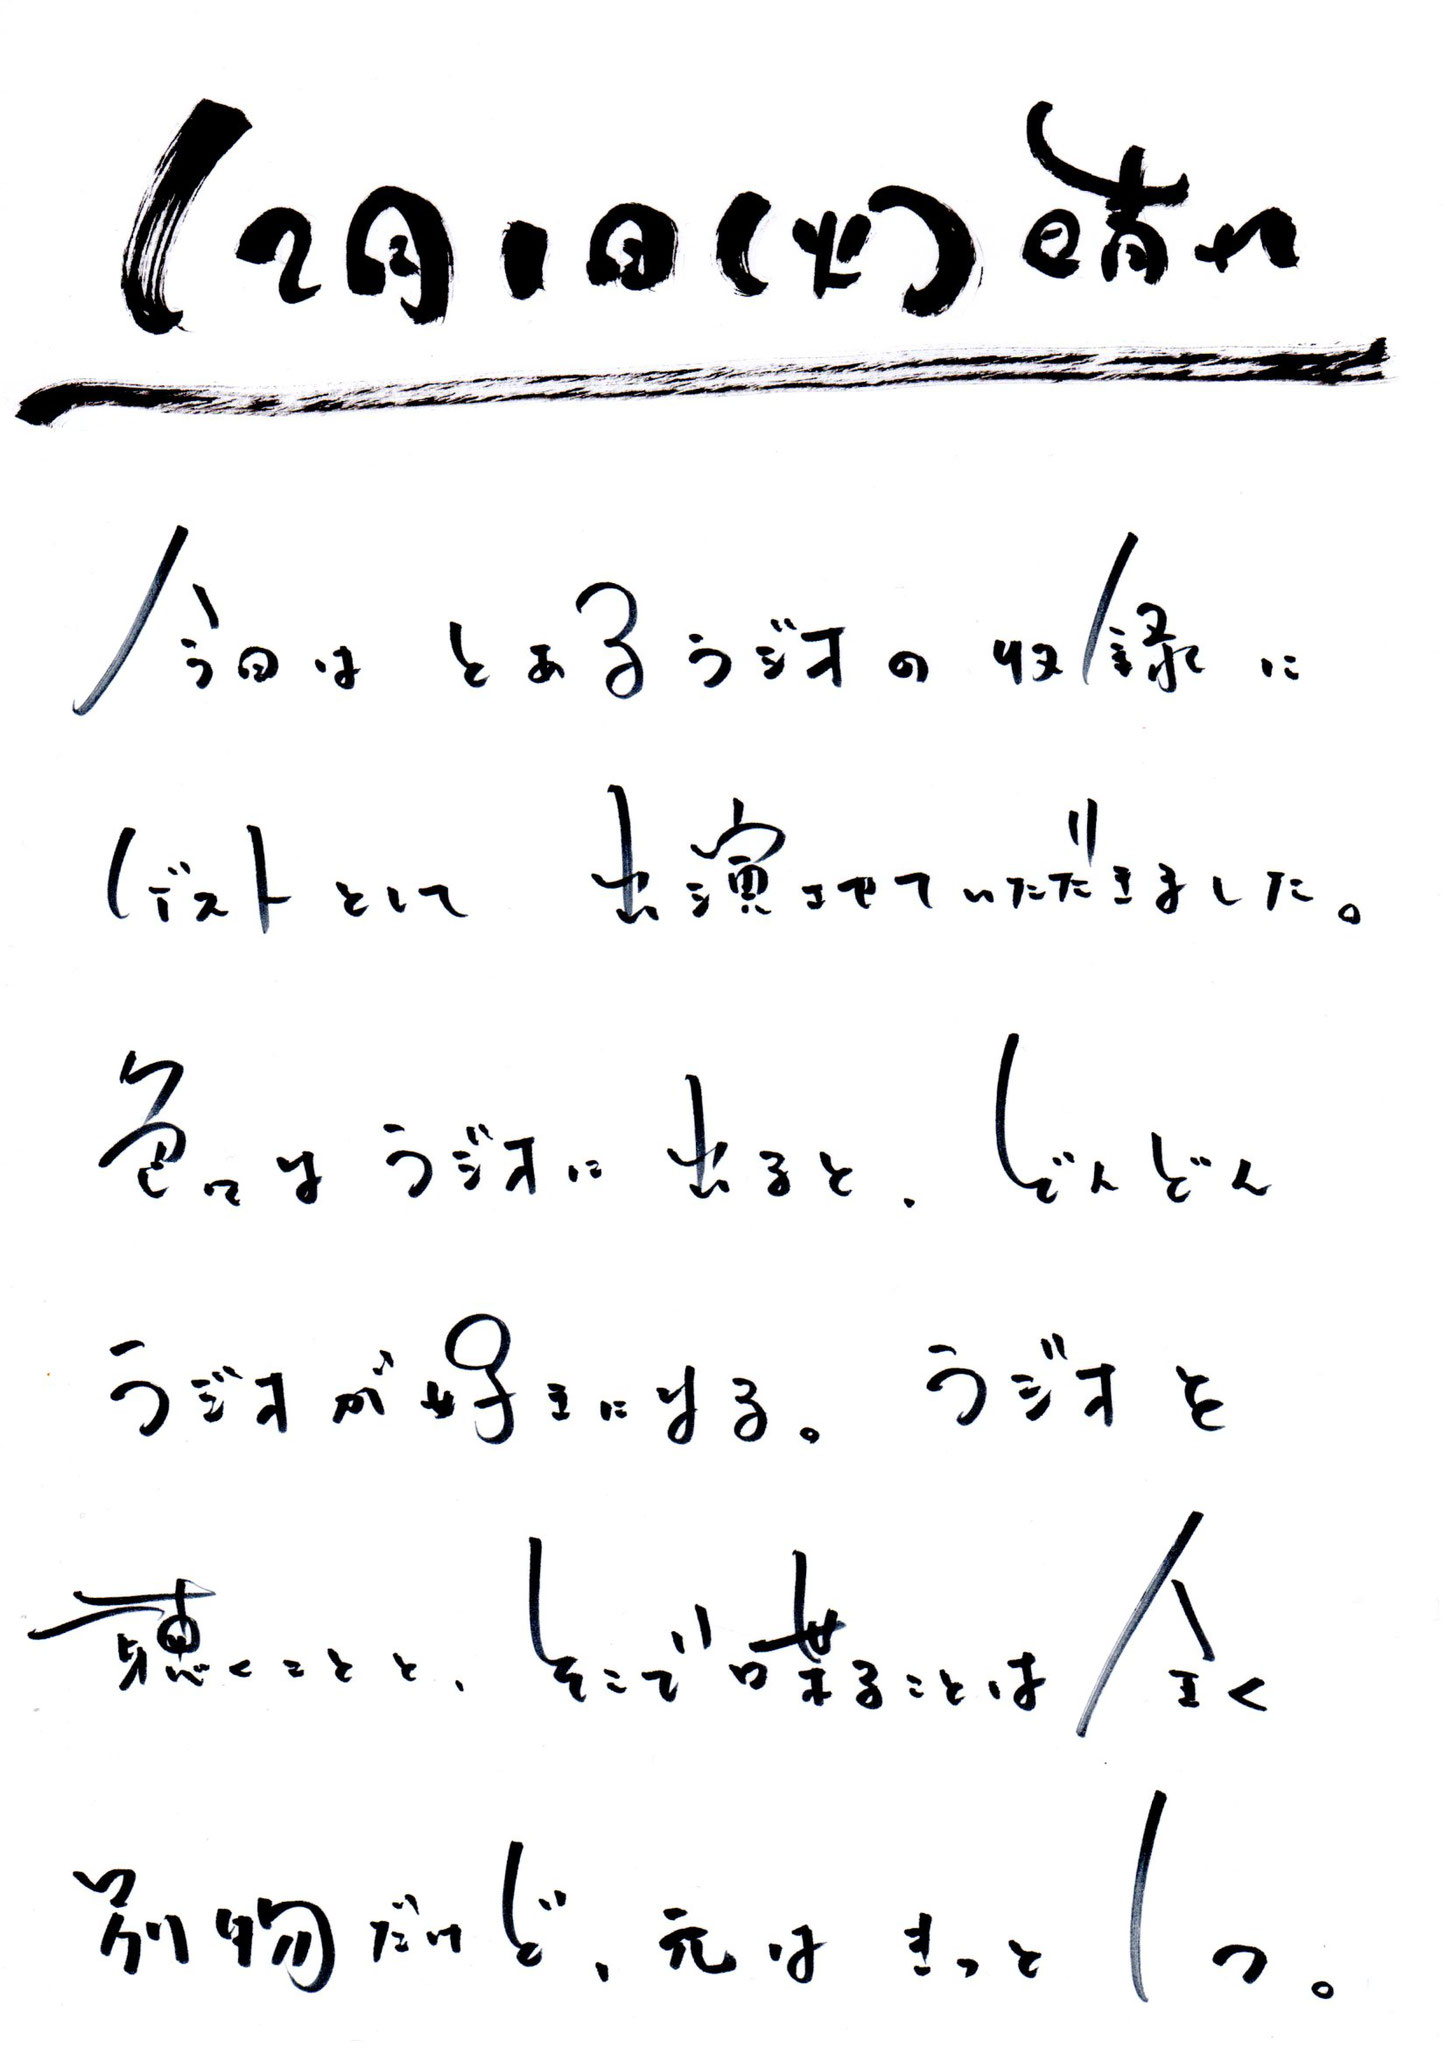 12月1日(火)晴れ
今日はとあるラジオの収録に
ゲストとして 出演させていただきました。
色々なラジオに出ると、どんどん
ラジオが好きになる。ラジオを
聴くことと、そこで喋ることは全く
別物だけど、元はきっと1つ。